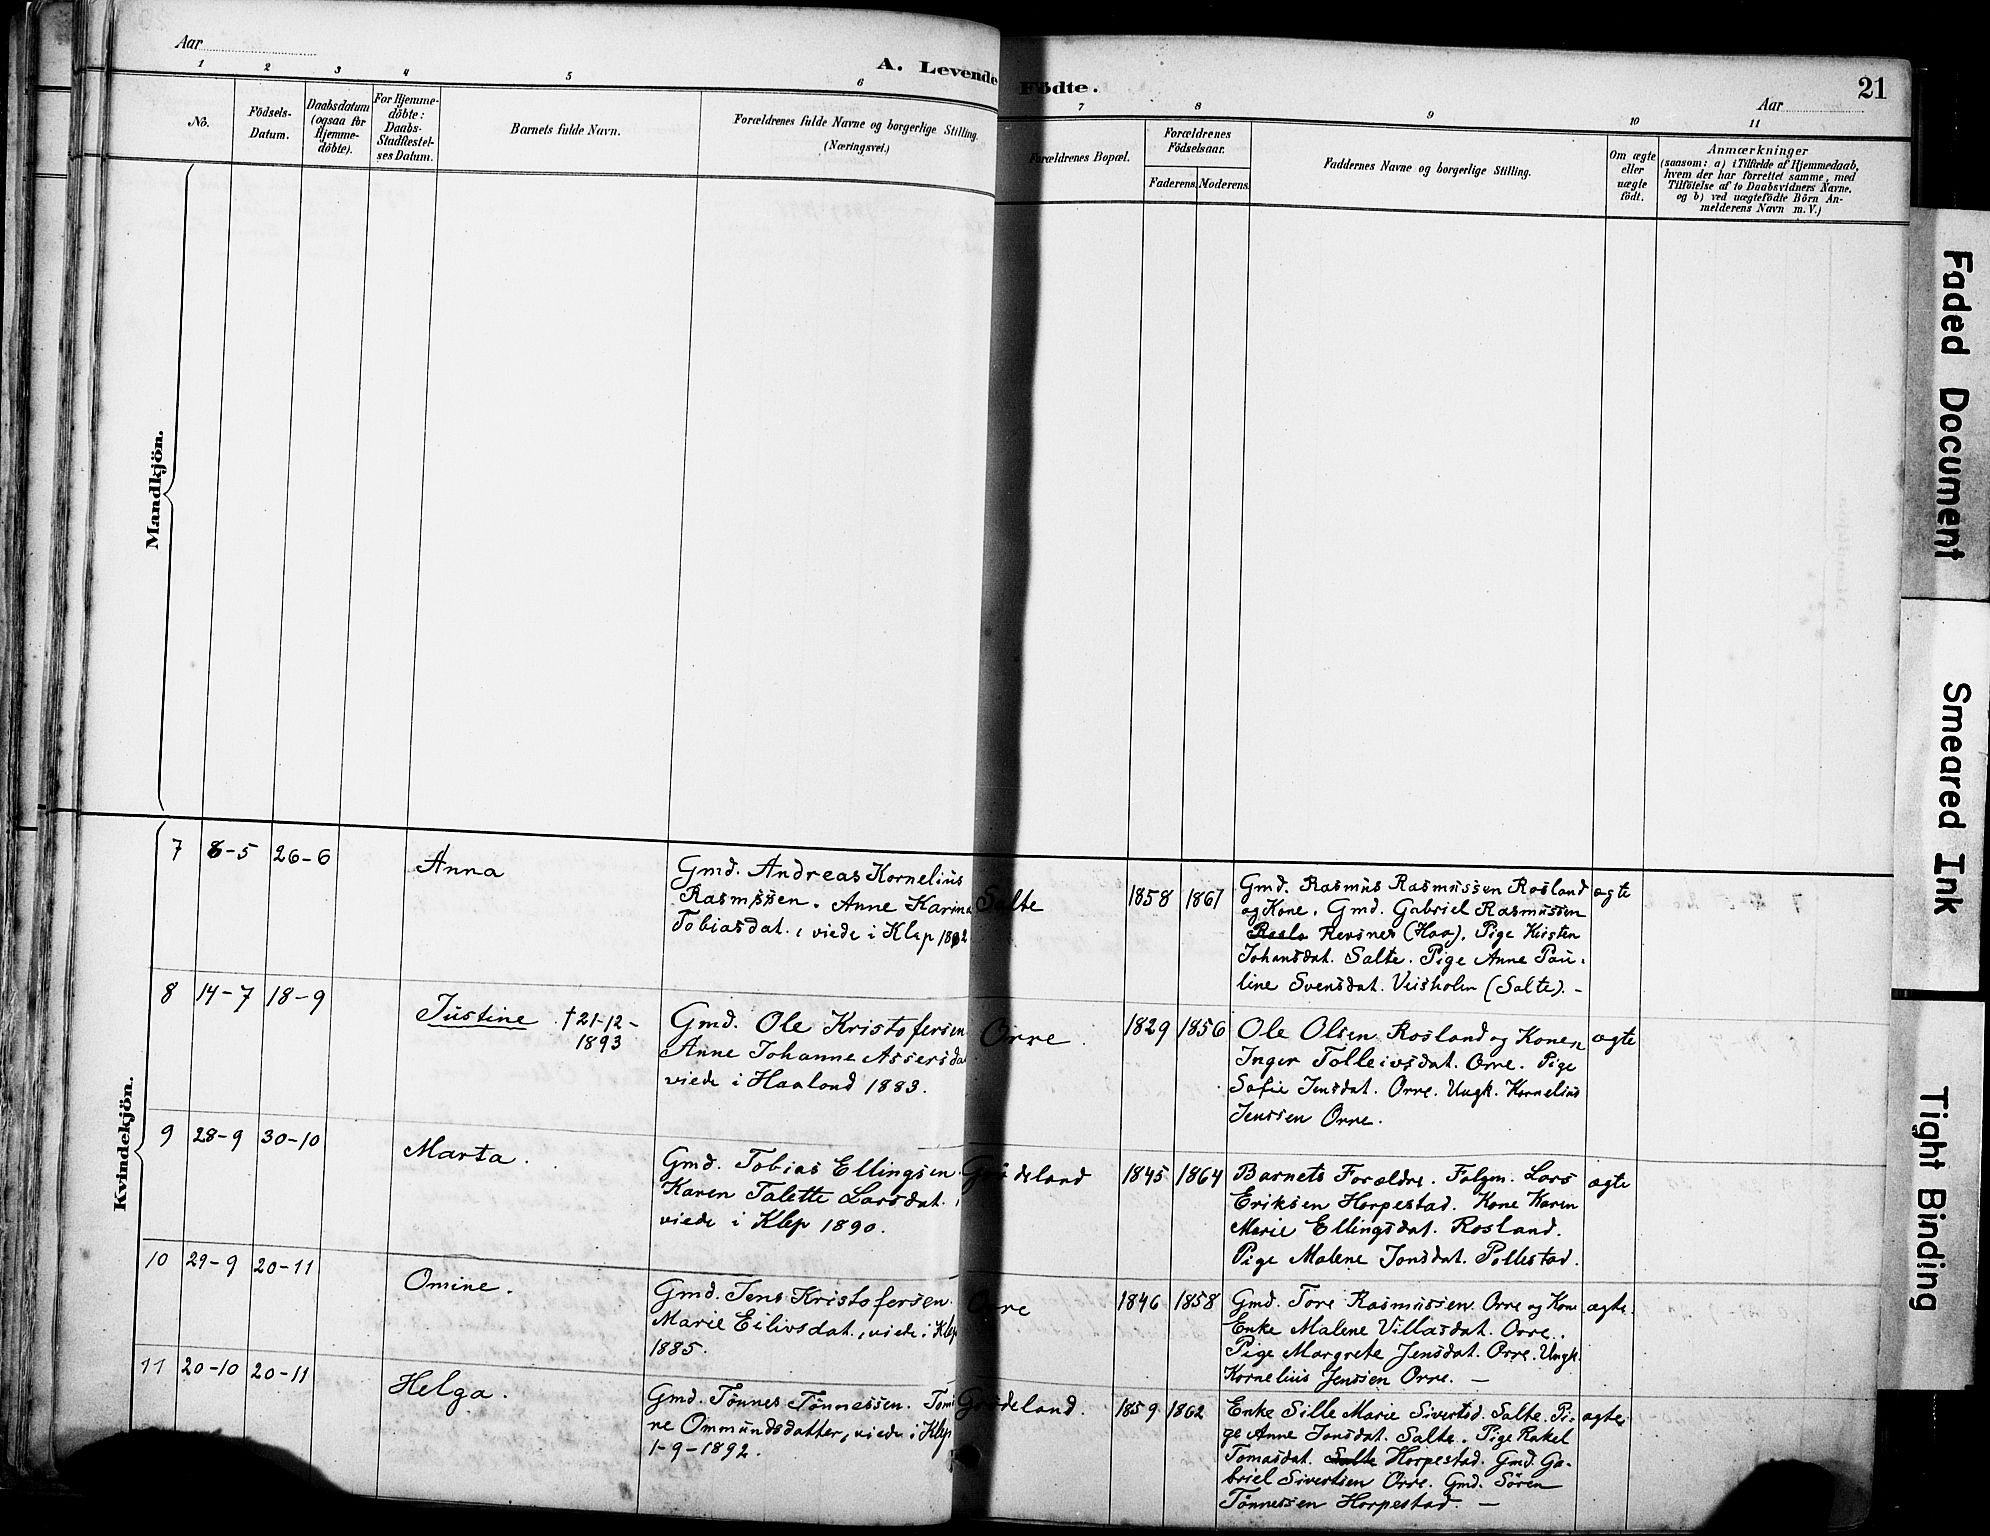 Aar
A. Levende Födte.
Aar
21
1 2 3 4 5 6 7 8 9 10 11
No.
Födsels-
Datum.
Daabsdatum
(ogsaa for
Hjemme-
döbte).
For Hjemme-
döbte:
Daabs-
Stadfæstel-
ses Datum.
Barnets fulde Navn.
Forældrenes fulde Navne og borgerlige Stilling.
(Næringsvei.)
Forældrenes Bopæl.
Forældrenes
Födselsaar.
Faderens. Moderens.
Faddernes Navne og borgerlige Stilling.
Om ægte
eller
uægte
födt.
Anmærkninger
(saasom: a) i Tilfælde af Hjemmedaab,
hvem der har forrettet samme, med
Tilföielse af to Daabsvidners Navne,
og b) ved uægtefödte Börn An-
melderens Navn m. V.)
Mandkjön.
Kvindekjön.
7 6-5 26-6
Anna
Gmd. Andreas Kornelius
Rasmussen. Anne Karina
Tobiasdat., viede i Klep
Salte
1858 1867
Gmd. Rasmus Rasmussen Rosland
og Kone. Gmd. Gabriel Rasmussen
(Haa). Pige Kirsten
Johansdat. Salte. Pige Anne Pau-
line Svensdat. (Salte). -
ægte
8 14-7 18-9
Justine † 21-12-
1893
Gmd. Ole Kristofersen
Anne Johanne Assersdat
viede i Haaland 1883.
Orre.
1829 1856
Ole Olsen Rosland og Konen
Inger Tolleivsdat. Orre. Pige
Sofie Jensdat. Orre. Ungk. Kornelius
Jenssen Orre.
ægte
9 28-9 30-10
Marta.
Gmd. Tobias Ellingsen.
Karen Talette Larsdat.,
viede i Klep 1890.
Grudeland
1845 1864
Barnets Forældre. Folgm. Lars
Eriksen Horpestad. Kone Karen
Marie Ellingsdat. Rosland.
Pige Malene Jonsdat. Pollestad.
ægte
10 29-9 20-11
Omine.
Gmd. Jens Kristofersen.
Marie Eilivsdat., viede i Klep
1885.
Orre
1846 1858
Gmd. Tore Rasmussen Orre og Kone
Enke Malene Villasdat. Orre.
Pige Margrete Jensdat. Orre. Ungk.
Kornelius Jenssen Orre. -
ægte.
11 20-10 20-11
Helga.
Gmd. Tønnes Tønnessen. Tomi
ne Ommundsdatter, viede i Klep
1-9-1892.
Grudeland.
1859 1862
Enke Sille Marie Sivertsd. Salte. Pi-
ge Anne Jonsdat. Salte. Pige Rakel
Tomasdat. Salte Horpestad. Gmd. Ga-
briel Sivertsen Orre. Gmd. Sören
Tønnessen Horpestad. -
ægte
Faded Document
Smeared Ink
Tight Binding